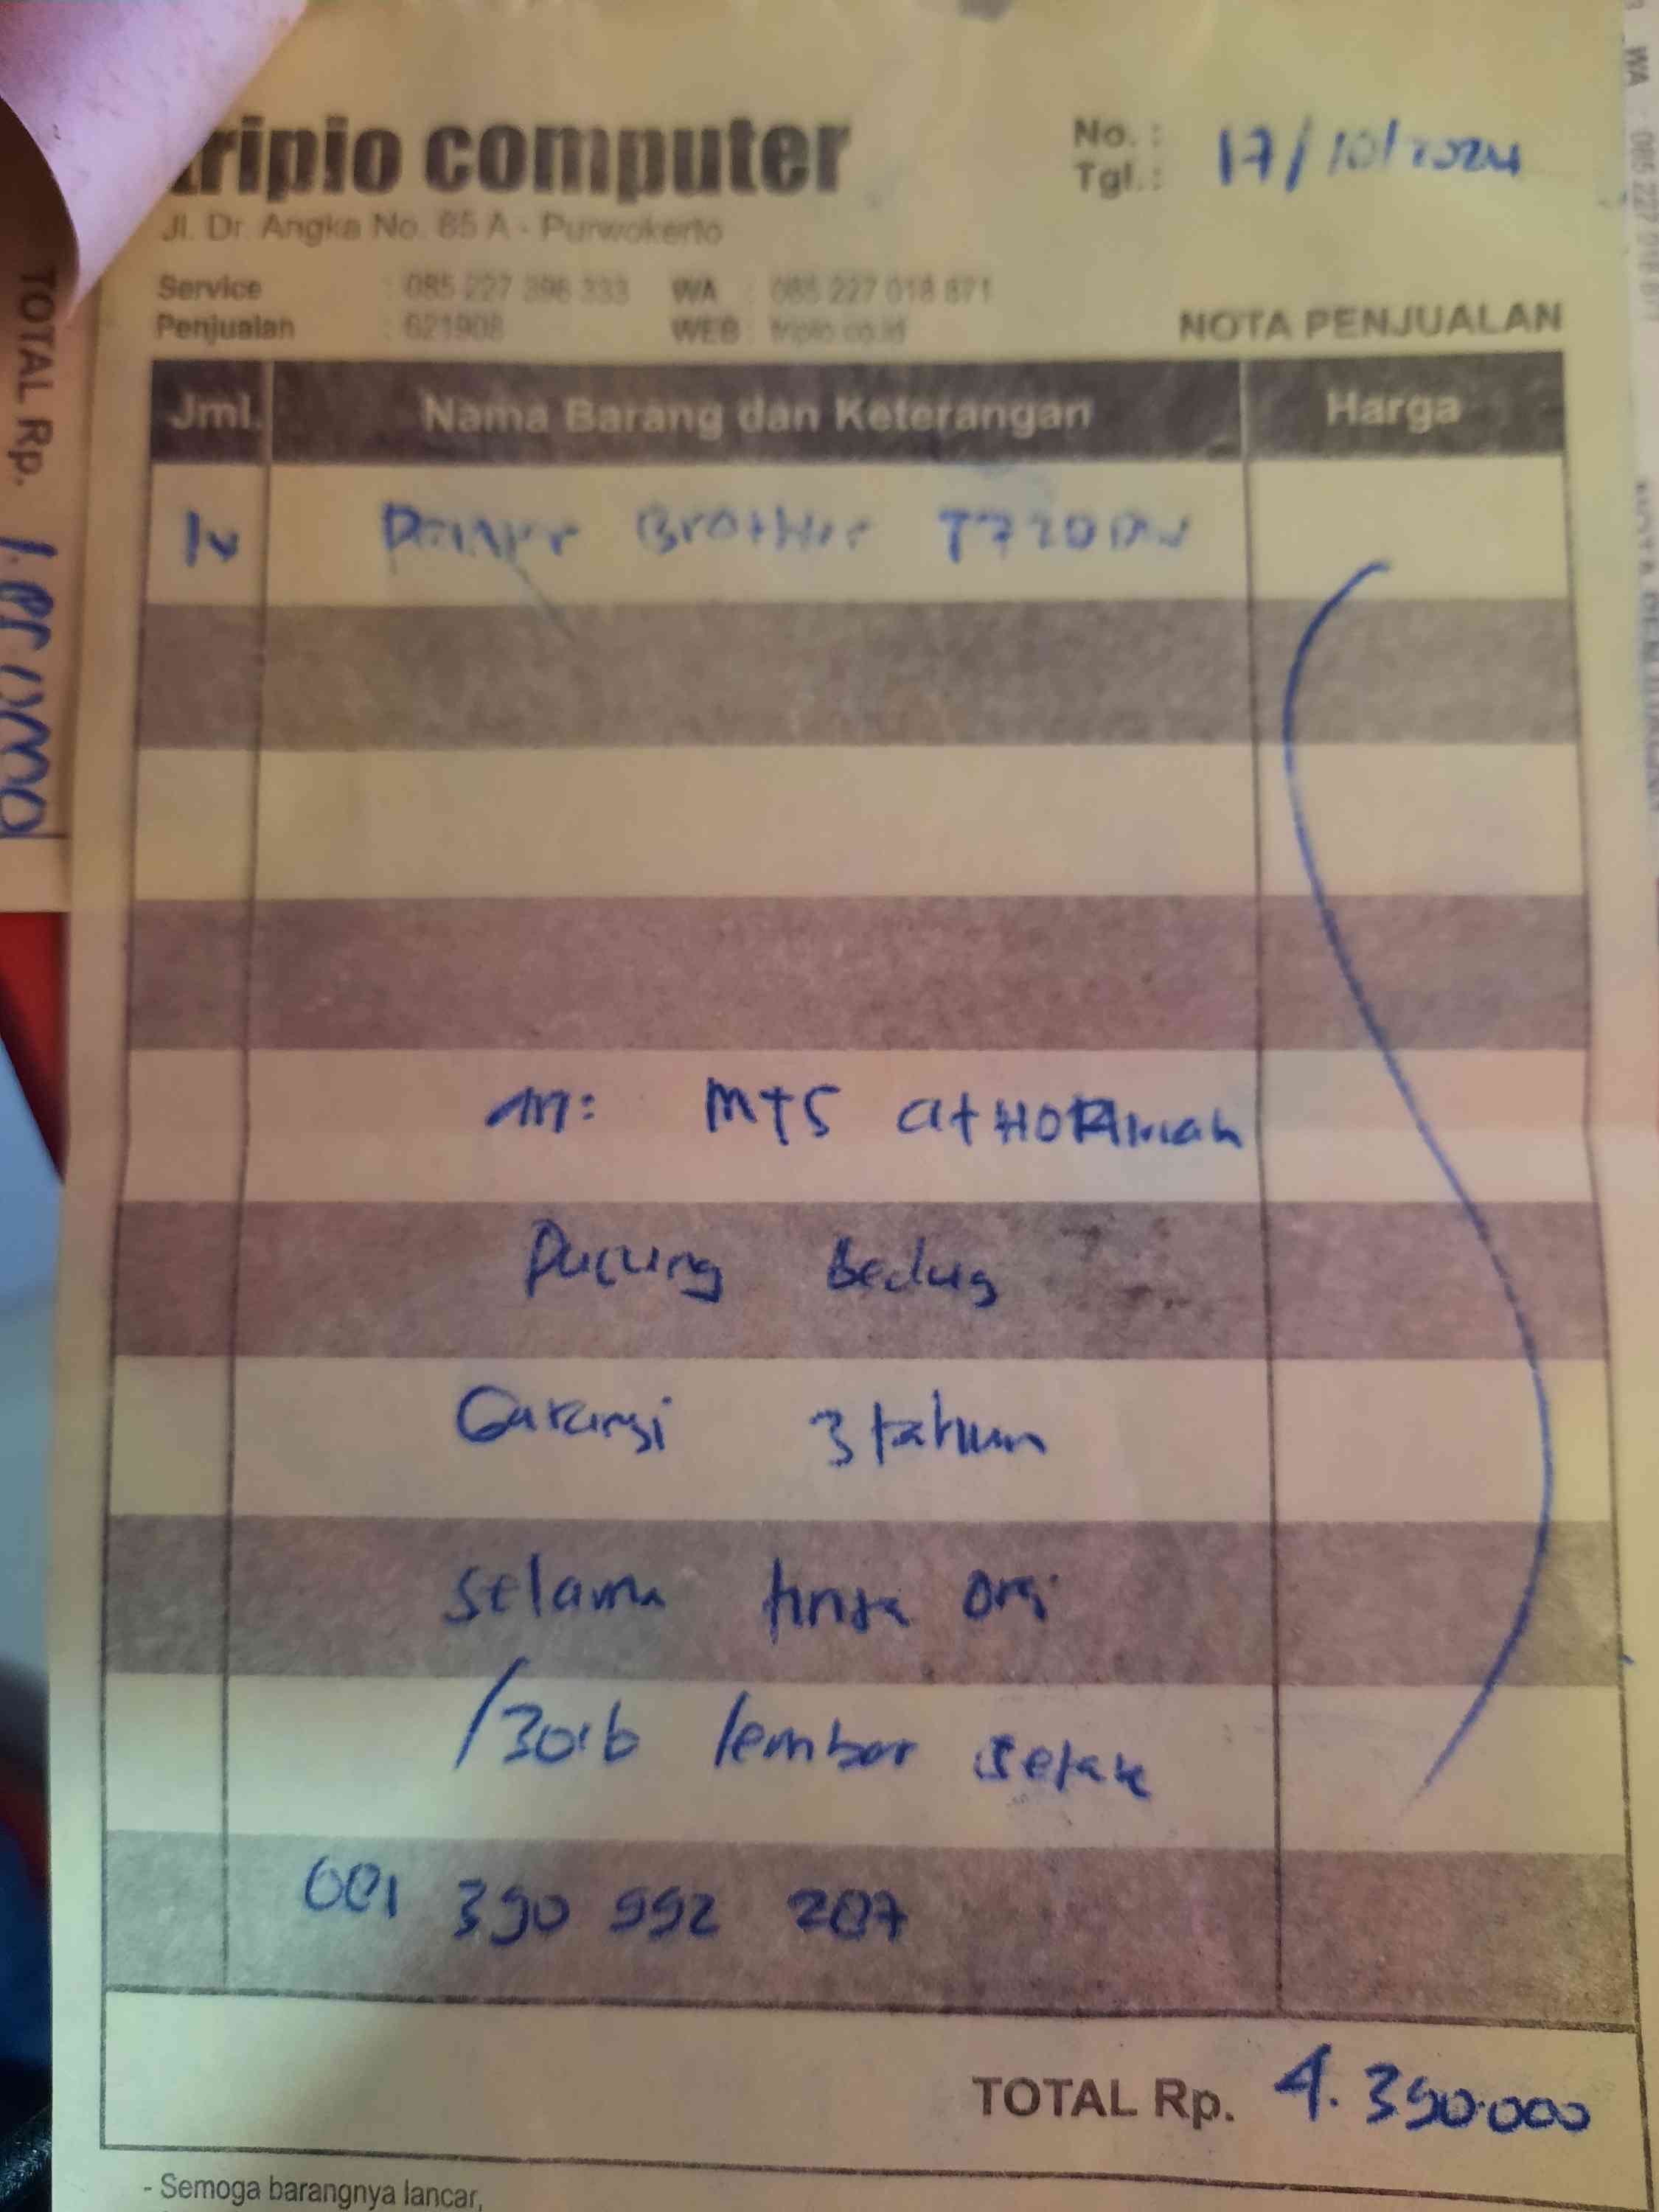 tripio computer
No. :
Tgl. : 17/10/2024
Jl. Dr. Angka No. 85 A - Purwokerto
Service : 085 227 396 333 WA : 085 227 018 871
Penjualan : 621908 WEB : tripio.co.id
NOTA PENJUALAN
Jml. Nama Barang dan Keterangan Harga
1u Brother T720DW
MTS
Pucung Bedug
Garansi 3 tahun
selama tinta ori
/30rb lembar
390 992 207
TOTAL Rp. 4.390.000
- Semoga barangnya lancar,
TOTAL Rp.
WA : 085 227 018 871